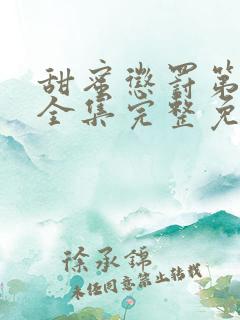 甜蜜惩罚第
全集完整免
徐承锦
未经同意禁止转载